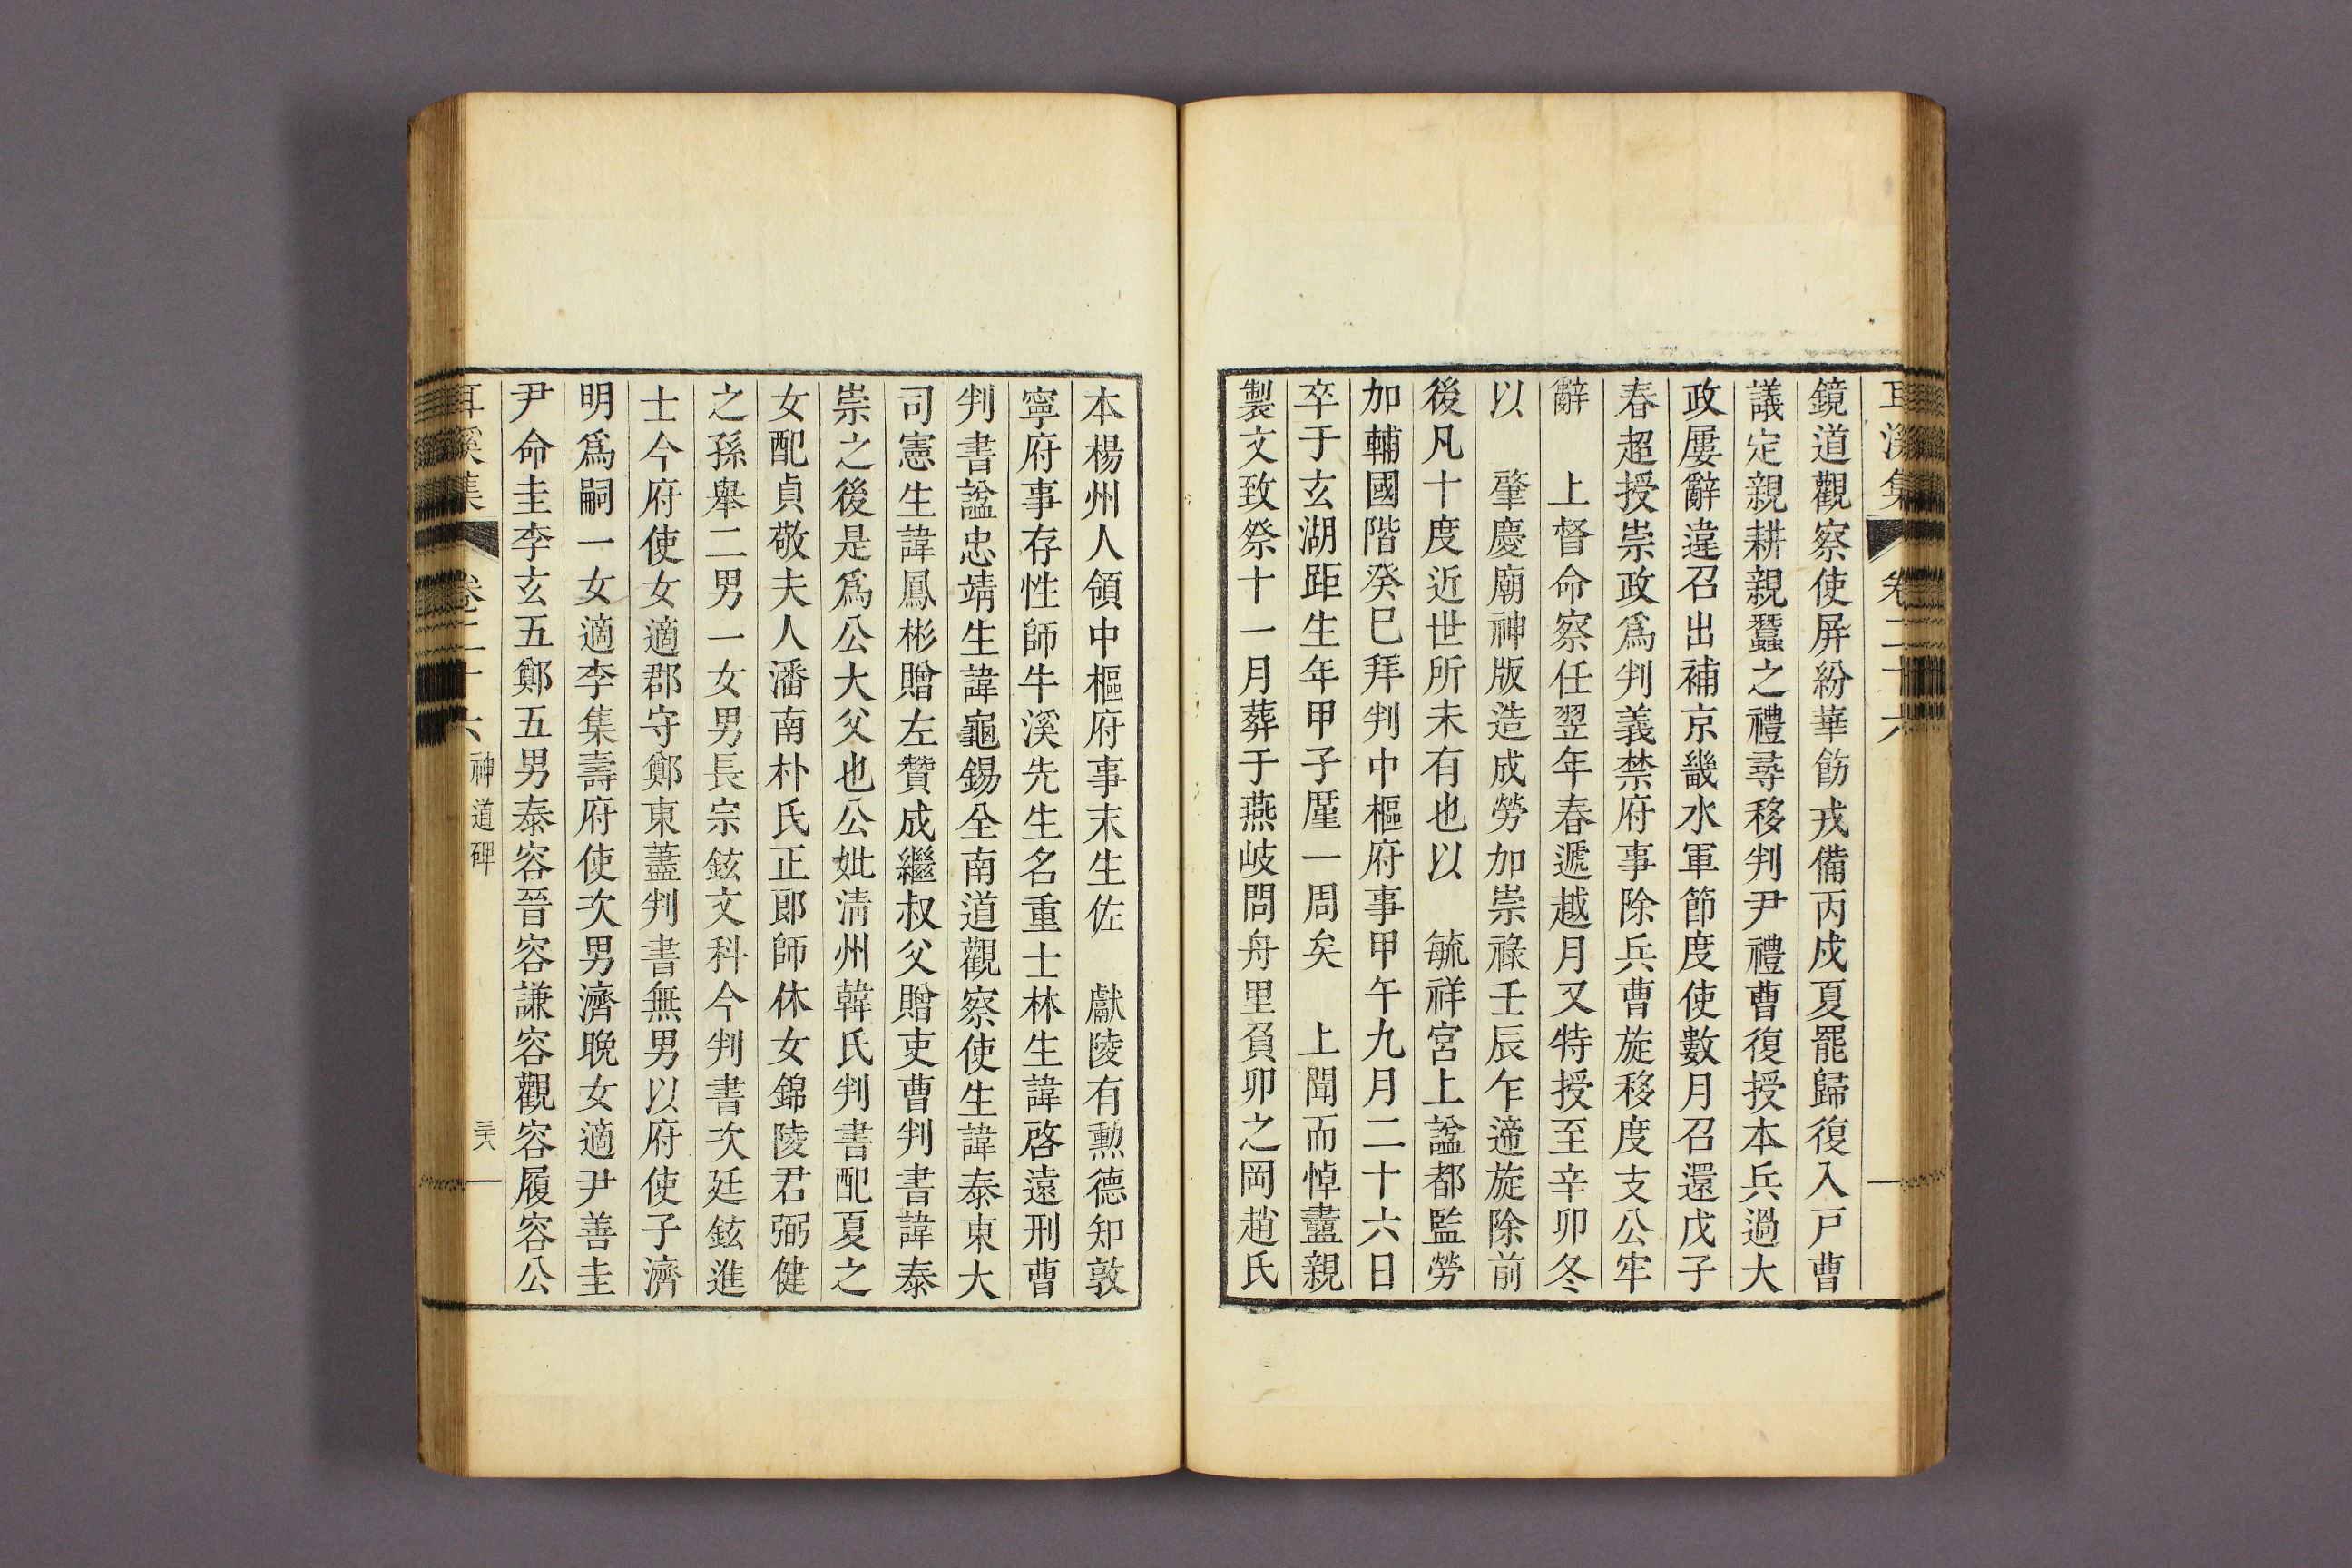 耳溪集 卷二十六
鏡道觀察使屏紛華飭戎備丙戍夏罷歸復入戶曹
議定親耕親蠶之禮尋移判尹禮曹復授本兵過大
政屢辭違召出補京畿水軍節度使數月召還戊子
春超授崇政爲判義禁府事除兵曹旋移度支公牢
辭 上督命察任翌年春遞越月又特授至辛卯冬
以 肇慶廟神版造成勞加崇祿壬辰乍遞旋除前
後凡十度近世所未有也以 毓祥宮上諡都監勞
加輔國階癸巳拜判中樞府事甲午九月二十六日
卒于玄湖距生年甲子厪一周矣 上聞而悼盡親
製文致祭十一月葬于燕岐問舟里負卯之岡趙氏
本楊州人領中樞府事末生佐 獻陵有勲德知敦
寧府事存性師牛溪先生名重士林生諱啓遠刑曹
判書諡忠靖生諱龜錫全南道觀察使生諱泰東大
司憲生諱鳳彬贈左贊成繼叔父贈吏曹判書諱泰
崇之後是爲公大父也公妣淸州韓氏判書配夏之
女配貞敬夫人潘南朴氏正郞師休女錦陵君弼健
之孫舉二男一女男長宗鉉文科今判書次廷鉉進
士今府使女適郡守鄭東藎判書無男以府使子濟
明爲嗣一女適李集壽府使次男濟晚女適尹善圭
尹命圭李玄五鄭五男泰容晉容謙容觀容履容公
耳溪集 卷二十六 神道碑 三六